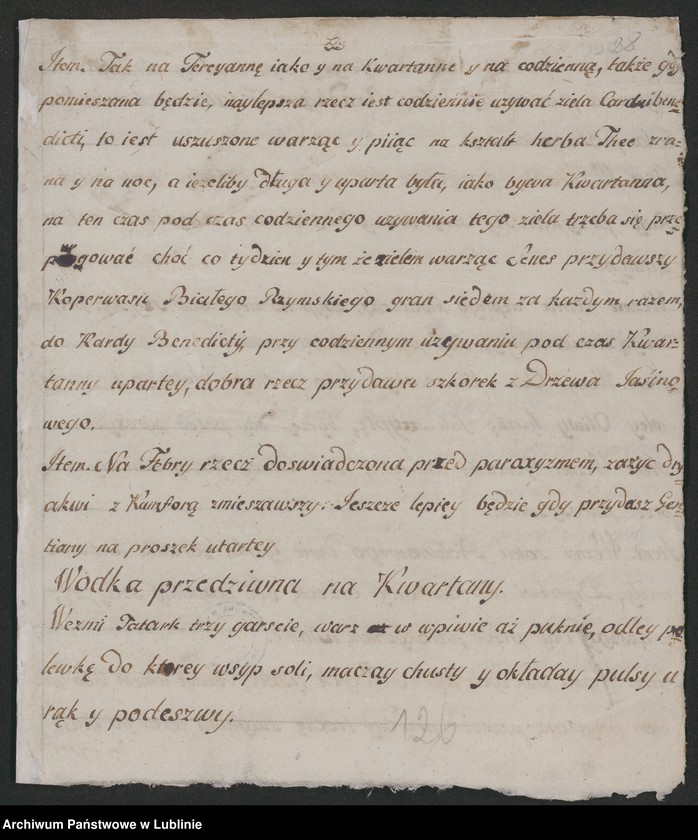 28
Item. Tak na Tercyannę iako y na Kwartanne y na codzienną, także gdy
pomieszana będzie, naylepsza rzecz iest codziennie uzywać ziela Cardui bene=
dicti, to iest uszuszone warząc y piiąc na kształt herba Thee zra=
na y na noc, a iezeliby długa y uparta była, iako bywa Kwartanna,
na ten czas pod czas codziennego uzywania tego ziela trzeba się prze
gować choć co tydzien y tym że zielem warząc Senes przydawszy
Koperwasu Białego Rzymskiego gran siedem za każdym razem,
do Kardy Benedicty, przy codziennym uzeywaniu pod czas Kwar=
tanny upartey, dobra rzecz przydawa szkorek z Drzewa Jasino
wego.
Item. Na Febry rzecz doswiadczona przed paroxyzmem, zażyc dry
akwi z Kamforą zmieszawszy. Jeszcze lepiey będzie gdy przydasz Gen
tiany na proszek utartey
Wodka przedziwna na Kwartany.
Wezmi Tatark trzy garscie, warz w wpiwie aż puknie, odley po
lewkę do ktorey wsyp soli, maczay chusty y okładay pulsy u
rąk y podeszwy.
126
Archiwum Państwowe w Lublinie